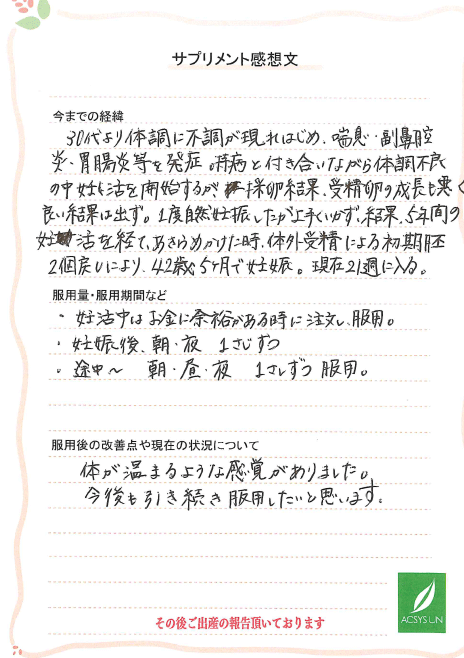 サプリメント感想文
今までの経緯
30代より体調に不調が現れはじめ、喘息・副鼻腔
炎・胃腸炎等を発症。持病と付き合いながら体調不良
の中妊活を開始するが、採卵結果、受精卵の成長も悪く
良い結果は出ず。1度自然妊娠したが上手くいかず、結果、5年間の
妊活を経て、あきらめかけた時、体外受精による初期胚
2個戻しにより、42歳5ヶ月で妊娠。現在21週に入る。
服用量・服用期間など
・妊活中はお金に余裕がある時に注文し、服用。
・妊娠後、朝・夜 1さじずつ
・途中～ 朝・昼・夜 1さじずつ服用。
服用後の改善点や現在の状況について
体が温まるような感覚がありました。
今後も引き続き服用したいと思います。
その後ご出産の報告頂いております
ACSYS LIN